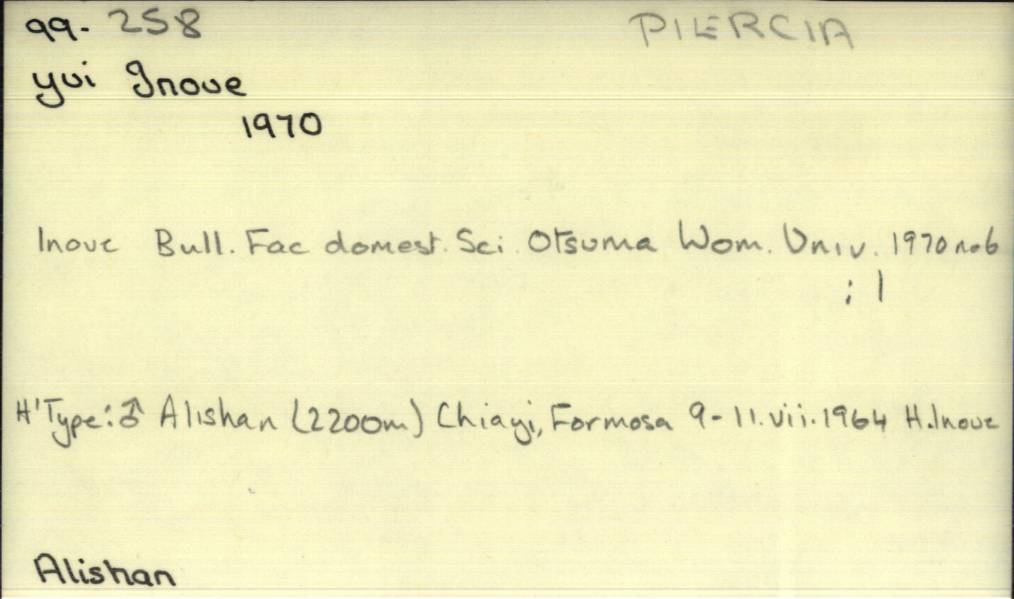 99- 258 PILERCIA
yui Inoue
1970
Inoue Bull. Fac domest. Sci Otsuma Wom. Univ. 1970 no6
: 1
H'Type: ♂ Alishan (2200m) Chiayi, Formosa 9-11.vii.1964 H.Inoue
Alishan